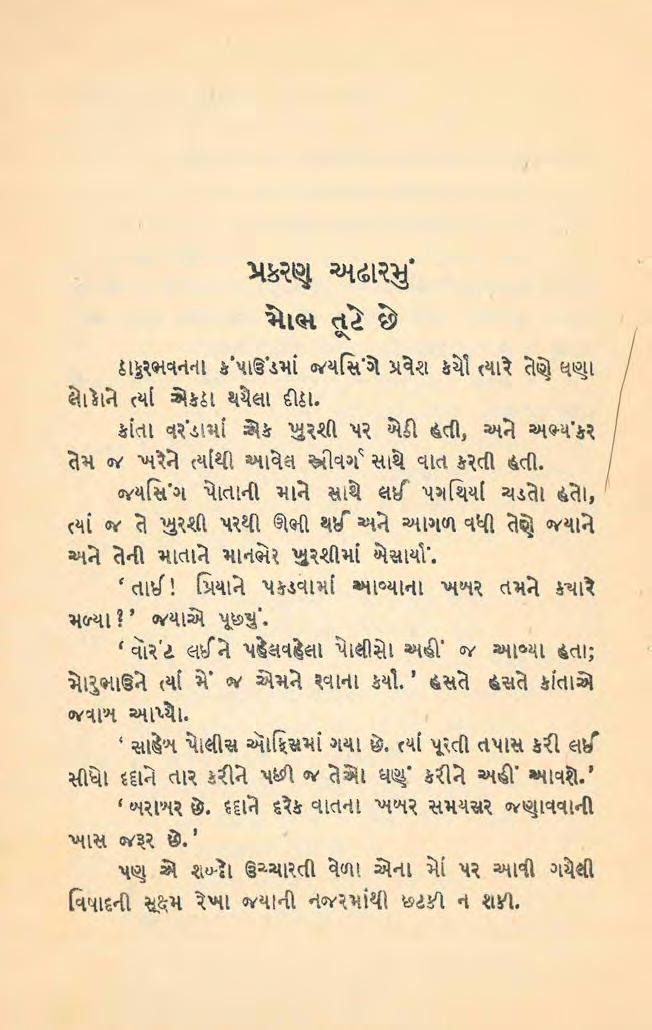 પ્રકરણ અઢારમું
મોભ તૂટે છે
ઠાકુરભવનના કંપાઉંડમાં જયસિંગે પ્રવેશ કર્યો ત્યારે તેણે ઘણા
લોકોને ત્યાં એકઠા થયેલા દીઠા.
કાંતા વરંડામાં એક ખુરશી પર બેઠી હતી, અને અભ્યંકર
તેમ જ ખરેને ત્યાંથી આવેલ સ્ત્રીવર્ગ સાથે વાત કરતી હતી.
જયસિંગ પોતાની માને સાથે લઈ પગથિયાં ચડતો હતો,
ત્યાં જ તે ખુરશી પરથી ઊભી થઈ અને આગળ વધી તેણે જયાને
અને તેની માતાને માનભેર ખુરશીમાં બેસાર્યાં.
‘તાઈ! પ્રિયાને પકડવામાં આવ્યાના ખબર તમને ક્યારે
મળ્યા?’ જયાએ પૂછ્યું.
‘વૉરંટ લઈને પહેલવહેલા પોલીસો અહીં જ આવ્યા હતા;
મોરુભાઉને ત્યાં મેં જ એમને રવાના કર્યા.’ હસતે હસતે કાંતાએ
જવાબ આપ્યો.
‘સાહેબ પોલીસ ઑફિસમાં ગયા છે. ત્યાં પૂરતી તપાસ કરી લઈ
સીધો દદ્દાને તાર કરીને પછી જ તેઓ ઘણું કરીને અહીં આવશે.’
‘બરાબર છે. દદ્દાને દરેક વાતના ખબર સમયસર જણાવવાની
ખાસ જરૂર છે.’
પણ એ શબ્દો ઉચ્ચારતી વેળા એના મોં પર આવી ગયેલી
વિષાદની સૂક્ષ્મ રેખા જયાની નજરમાંથી છટકી ન શકી.